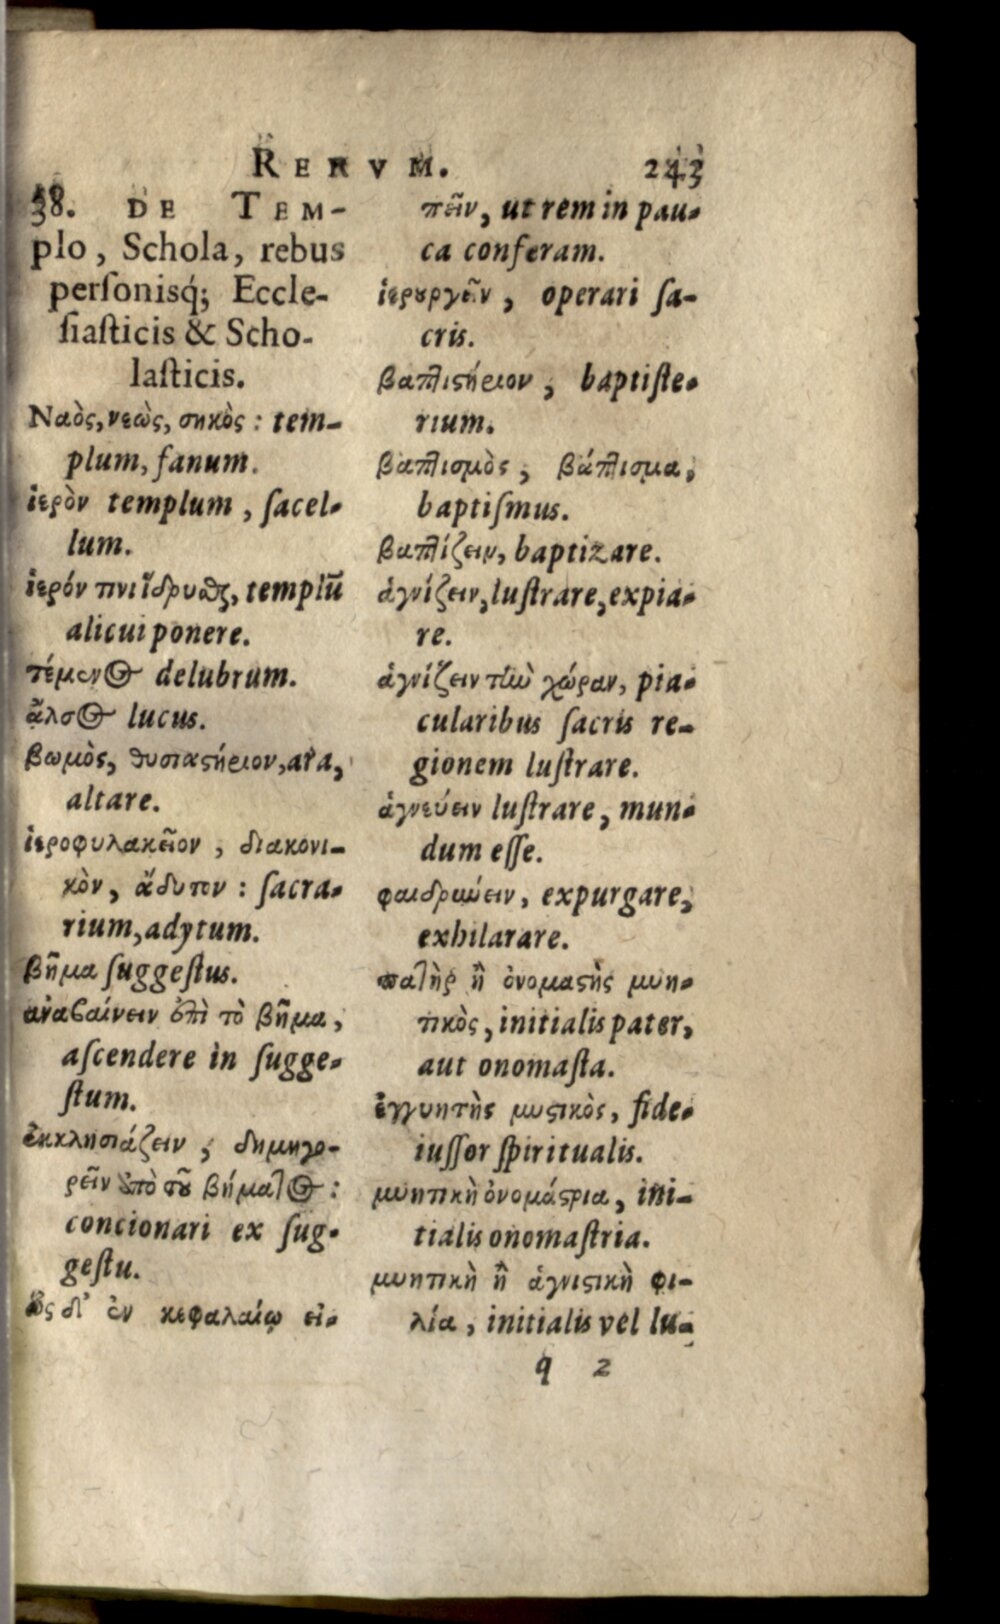 RERVM. 243
38. DE TEM-
plo, Schola, rebus
personisq́; Eccle-
ſiaſticis & Scho-
laſticis.
Ναὸς, νεὼς, σηκὸς: tem-
plum, fanum.
ἱερὸν templum, ſacel-
lum.
ἱερόν τινι ἵδρυσαι, templū
alicui ponere.
τέμενος delubrum.
ἄλσος lucus.
βωμὸς, θυσιαϛήριον, ara,
altare.
ἱεροφυλακεῖον, διακονι-
κὸν, ἄδυτον: ſacra-
rium, adytum.
βῆμα ſuggeſtus.
ἀναβαίνειν ἐπὶ τὸ βῆμα,
aſcendere in ſugge-
ſtum.
ἐκκλησιάζειν, δημηγο-
ρεῖν ἀπὸ τοῦ βήματος:
concionari ex ſug-
geſtu.
Ὡς δ' ἐν κεφαλαίῳ εἰ-
πεῖν, ut rem in pau-
ca conferam.
ἱερουργεῖν, operari ſa-
cris.
βαπτιϛήριον, baptiſte-
rium.
βαπτισμὸς, βάπτισμα,
baptiſmus.
βαπτίζειν, baptizare.
ἁγνίζειν, luſtrare, expia-
re.
ἁγνίζειν τὴν χώραν, pia-
cularibus ſacris re-
gionem luſtrare.
ἁγνεύειν luſtrare, mun-
dum eſſe.
φαιδρύνειν, expurgare,
exhilarare.
πατὴρ ἢ ὀνομαϛὴς μυη-
τικὸς, initialis pater,
aut onomaſta.
ἐγγυητὴς μυϛικὸς, fide-
iuſſor ſpiritualis.
μυητικὴ ὀνομάϛρια, ini-
tialis onomaſtria.
μυητικὴ ἢ ἁγνιϛικὴ φι-
λία, initialis vel lu-
q 2